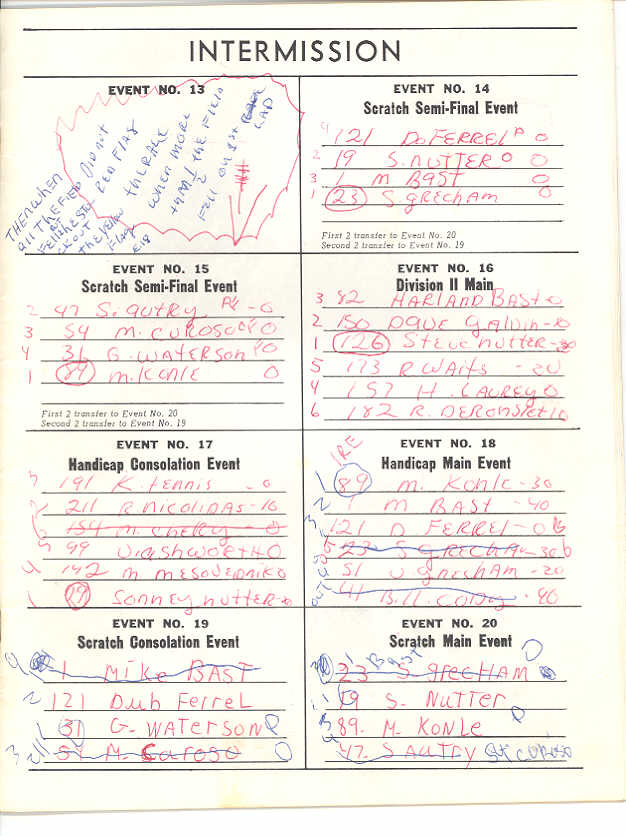 INTERMISSION
EVENT NO. 13
THEN WHEN
all THE FIELD
DID NOT
RED FLAG
THE RACE
WHEN MORE
THAN 1/2 THE FIELD
FELL ON 1ST
LAP
the Yellow
FLAG
EVENT NO. 14
Scratch Semi-Final Event
4 121 D. FERREL 0
2 19 S. NUTTER 0
3 1 M BAST 0
1 23 S. GRECHAM 0
First 2 transfer to Event No. 20
Second 2 transfer to Event No. 19
EVENT NO. 15
Scratch Semi-Final Event
2 47 S. AUTRY -0
3 54 M. CUROSO 0
4 31 G. WATERSON 0
1 89 M. KONLE 0
First 2 transfer to Event No. 20
Second 2 transfer to Event No. 19
EVENT NO. 16
Division II Main
3 82 HARLAND BAST-0
2 150 DAVE GALVIN-10
1 126 STEVE NUTTER-30
5 173 R WAITS -20
4 157 H. LAUREY 0
6 182 R. 10
EVENT NO. 17
Handicap Consolation Event
3 191 K. TENNIS -0
2 211 R NICOLIDAS-10
154 M. CHERRY -0
5 99 0
4 142 M 0
1 19 SONNEY NUTTER-
EVENT NO. 18
Handicap Main Event
IRE
1 89 M. KONLE -30
2 1 M BAST -40
3 121 D FERREL-0
23 S GRECHAM-30
51 J GRECHAM -20
out 41 Bill CODY -40
EVENT NO. 19
Scratch Consolation Event
1 MIKE BAST
2 121 Dub FerreL
1 31 G- WATERSON
3 54 M. Caroso
EVENT NO. 20
Scratch Main Event
1 Bast
23 S. GrecHAM
19 S. NuTTER
3 89. M. KONLE
47. S AUTRY 54 CUROSO